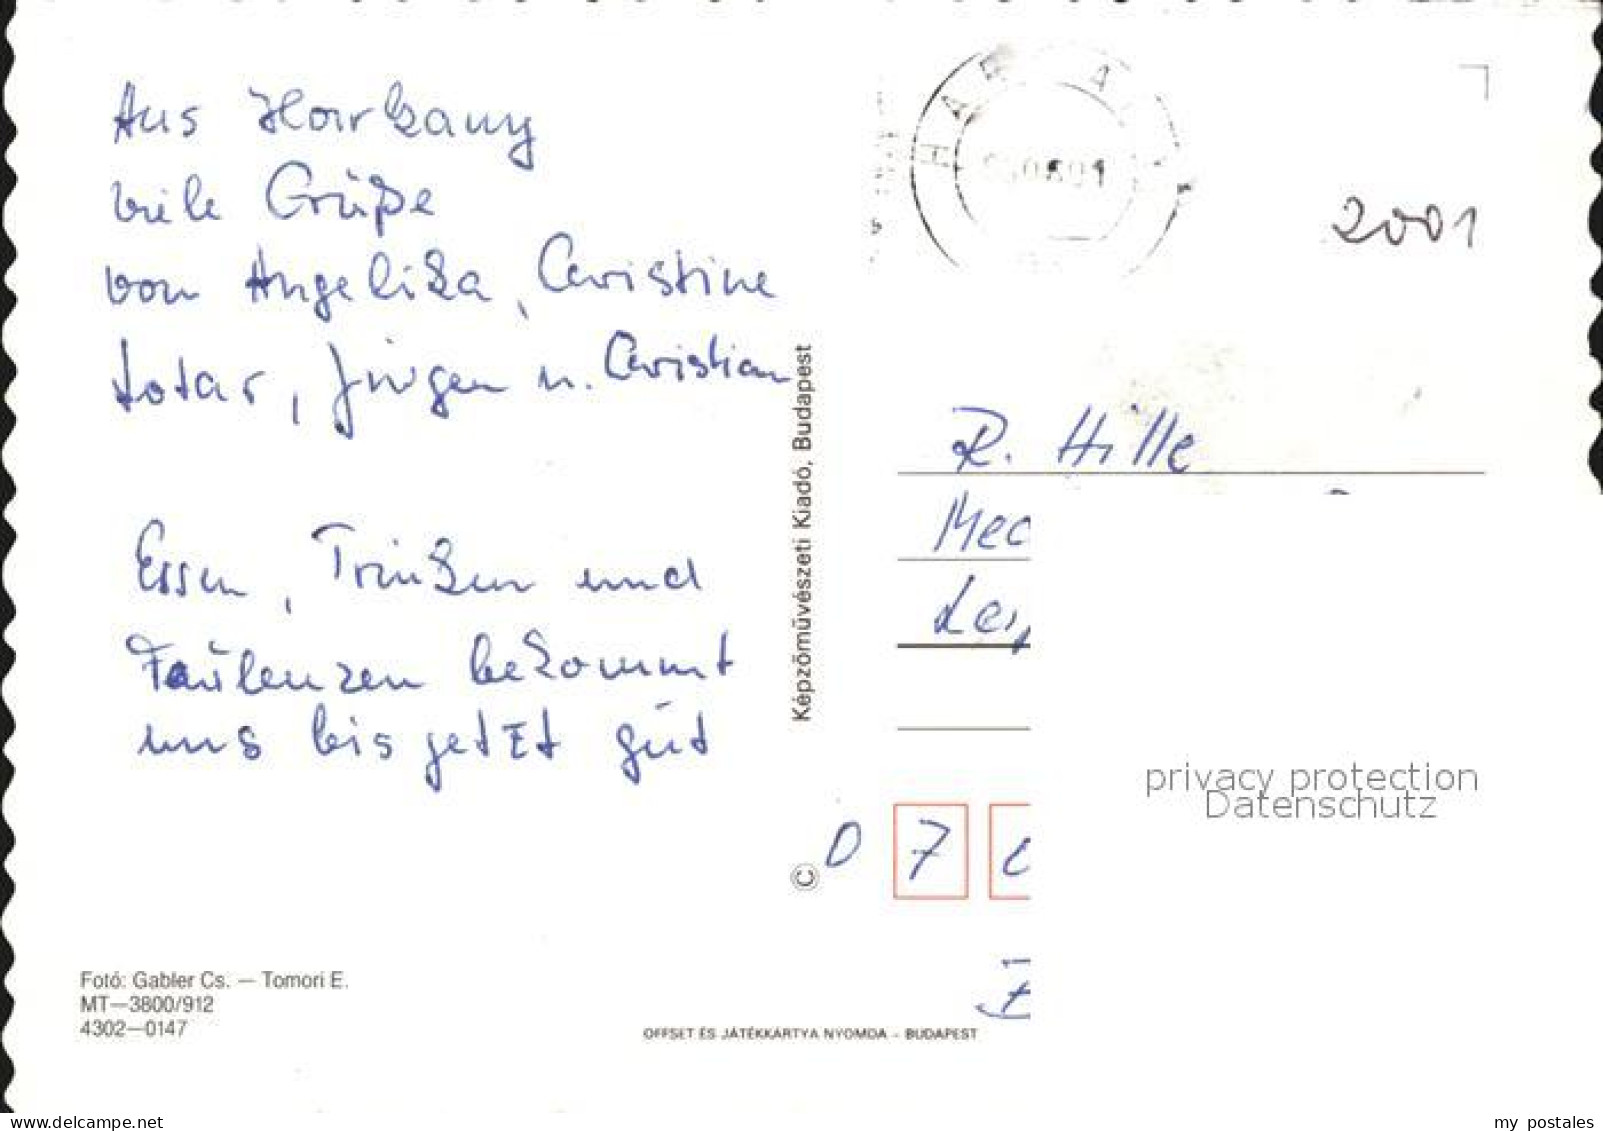 Aus Harkany
viele Grüße
von Angelika, Christine
Lotar, Jürgen u. Christian
Essen, Trinken und
Faulenzen bekommt
uns bis jetzt gut
Fotó: Gabler Cs. — Tomori E.
MT—3800/912
4302—0147
OFFSET ÉS JÁTÉKKÁRTYA NYOMDA – BUDAPEST
© Képzőművészeti Kiadó, Budapest
HARKANY
2001
R. Hille
Mec
Leip
D 7
privacy protection
Datenschutz
www.delcampe.net
my_postales